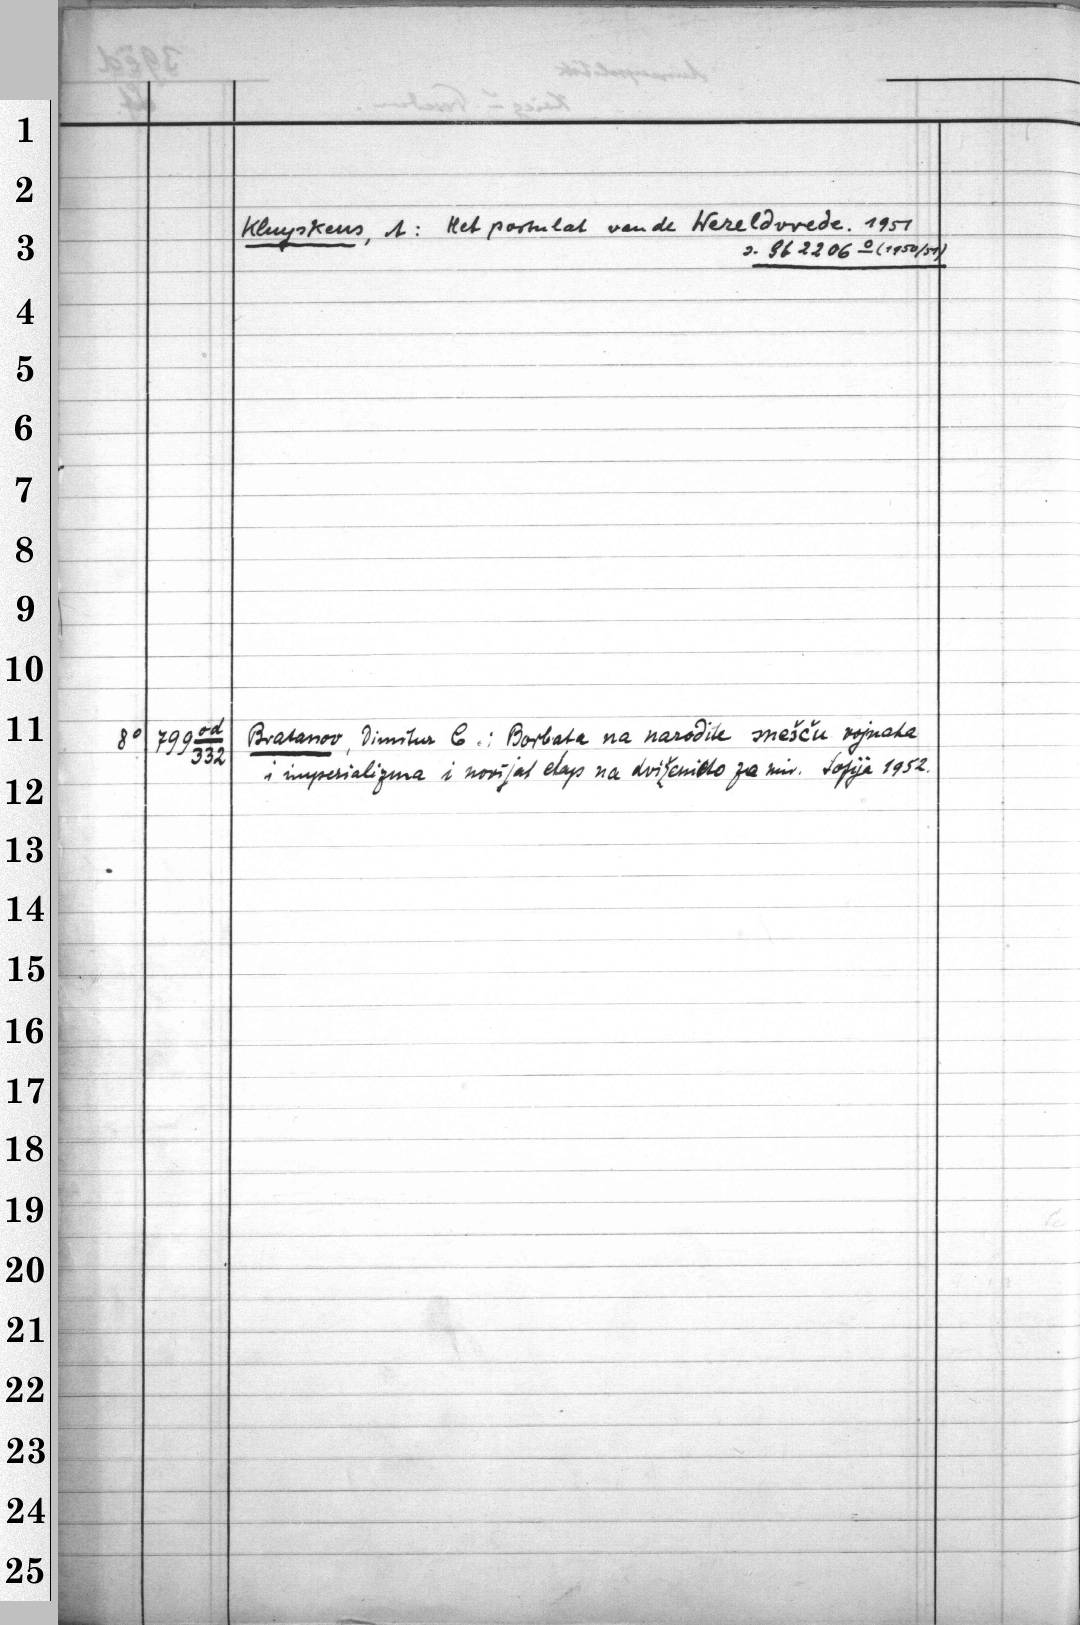 1
2
Kluyskens, A: Het postulat van de Wereldvrede. 1951
3
s. 9b 2206 º (1950/51)
4
5
6
7
8
9
10
11
8º 799 od/332 Bratanov, Dimitur C.: Borbata na narodite sreščŭ vojnata
i imperializma i novijat etap na dviženieto za mir. Sofija 1952.
12
13
14
15
16
17
18
19
20
21
22
23
24
25